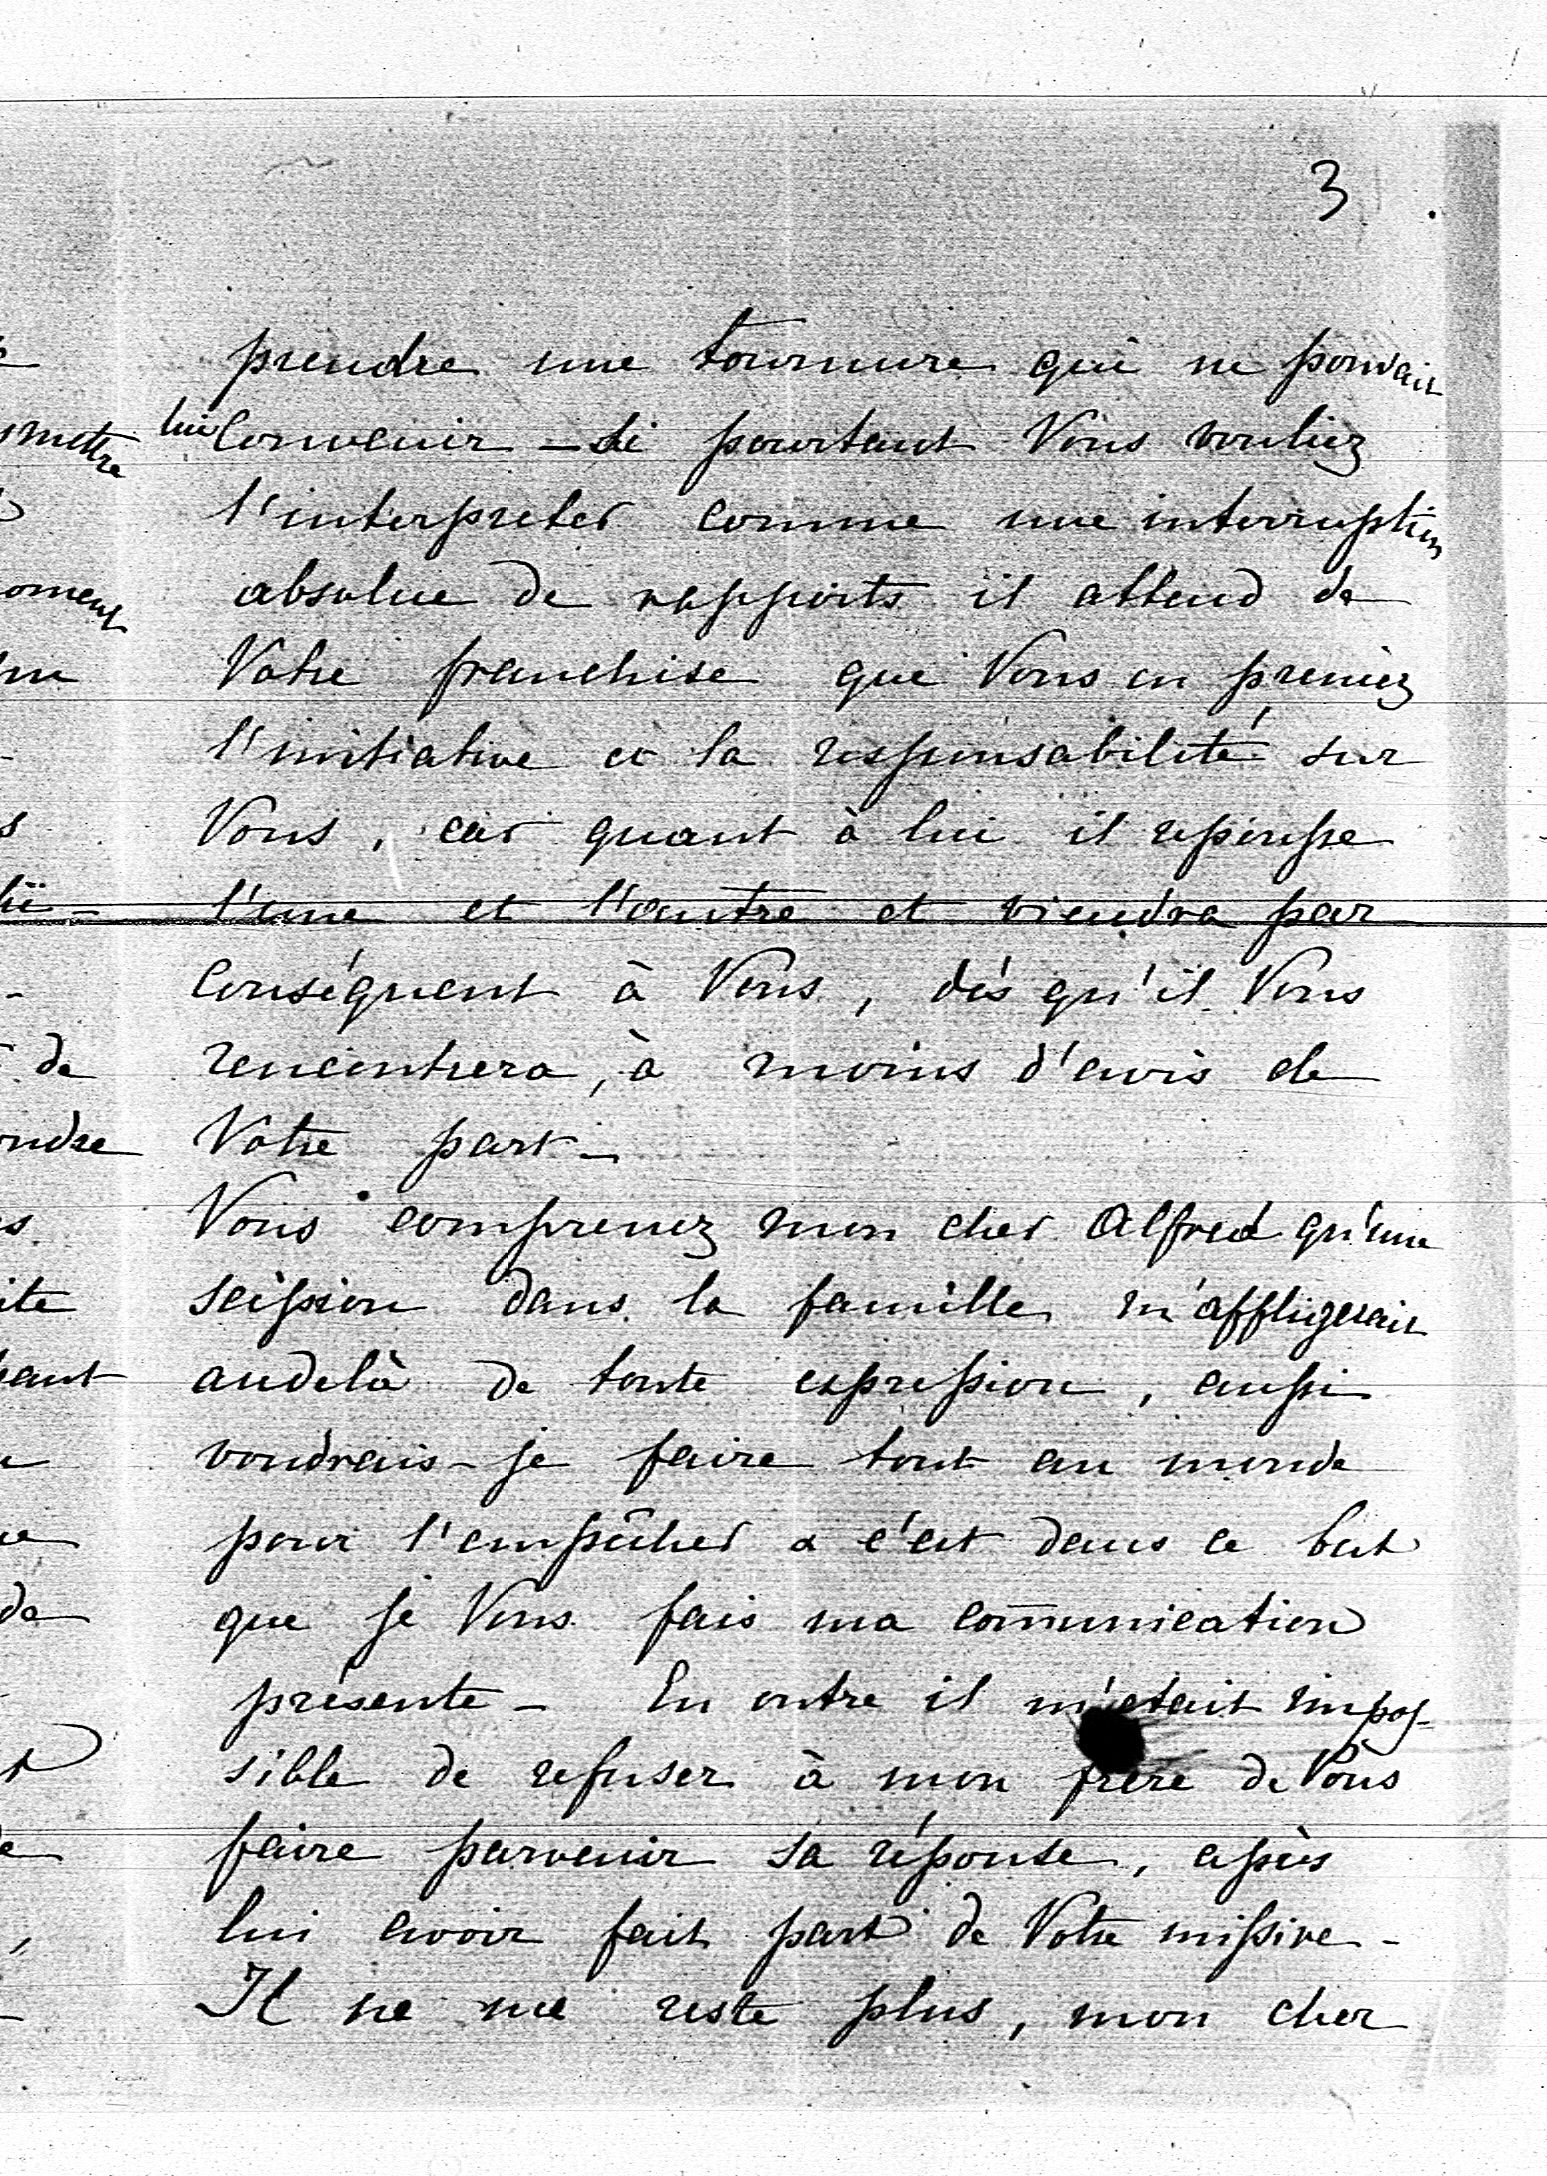 3
prendre une tournure qui ne pouvait
lui convenir – si pourtant Vous vouliez
l'interpreter comme une interruption
absolue de rapports il attend de
Votre franchise que Vous en preniez
l'initiative et la responsabilité sur
Vous, car quant à lui il repousse
l'une et l'autre et viendra par
conséquent à Vous, dès qu'il Vous
rencontrera, à moins d'avis de
Votre part –
Vous comprenez mon cher Alfred qu'une
scission dans la famille m'affligerait
audelà de toute expression, aussi
voudrais-je faire tout au monde
pour l'empêcher & c'est dans ce but
que je Vous fais ma com̄unication
présente – En outre il m'était impos-
sible de refuser à mon frère de Vous
faire parvenir sa réponse, après
lui avoir fait part de Votre missive –
Il ne me reste plus, mon cher